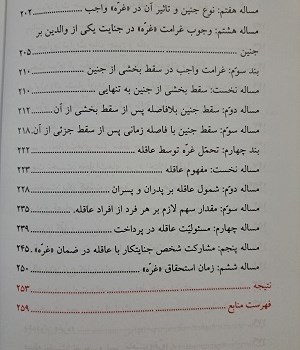 مساله هفتم: نوع جنین و تاثیر آن در «غرّه» واجب ..... ۲۰۲
مساله هشتم: وجوب غرامت «غرّه» در جنایت یکی از والدین بر
جنین ..... ۲۰۵
بند سوّم: غرامت واجب در سقط بخشی از جنین ..... ۲۱۰
مساله نخست: سقط بخشی از جنین به تنهایی ..... ۲۱۰
مساله دوّم: سقط جنین بلافاصله پس از سقط بخشی از آن ..... ۲۱۲
مساله سوّم: سقط جنین با فاصله زمانی پس از سقط جزئی از آن. ۲۱۸
بند چهارم: تحمّل غرّه توسط عاقله ..... ۲۲۲
مساله نخست: مفهوم عاقله ..... ۲۲۳
مساله دوّم: شمول عاقله بر پدران و پسران ..... ۲۲۸
مساله سوّم: مقدار سهم لازم بر هر فرد از أفراد عاقله. ..... ۲۳۵
مساله چهارم: مسئولیّت عاقله در پرداخت ..... ۲۳۹
مساله پنجم: مشارکت شخص جنایتکار با عاقله در ضمان «غرّه». ۲۴۵
مساله ششم: زمان استحقاق «غرّه» ..... ۲۵۰
نتیجه ..... ۲۵۳
فهرست منابع ..... ۲۵۹